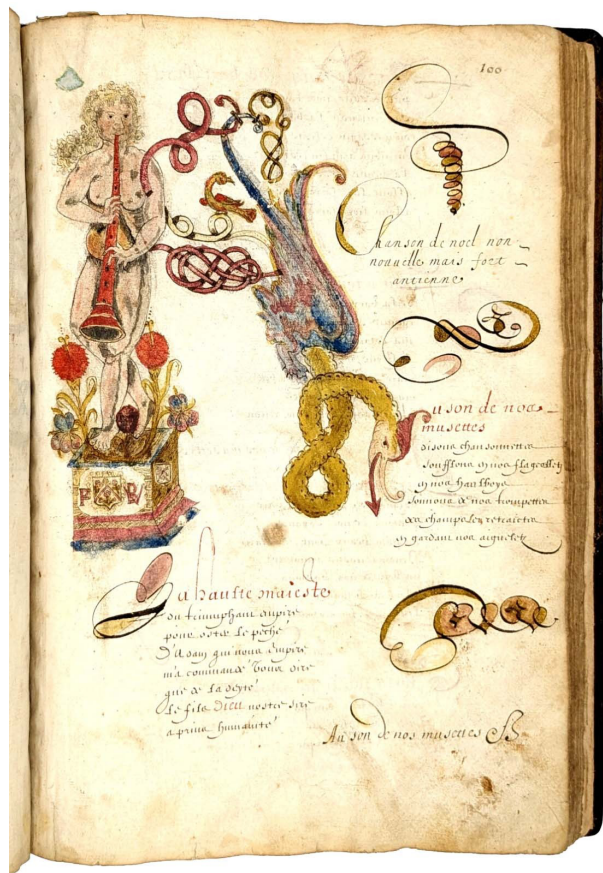 100
Chanson de noel non
nouuelle mais fort
antienne
Au son de nos
musettes
disons chansonnettes
soufflons en noz flageolletz
en noz haultboys
sonnons de nos trompettes
des champs les retraictes
en gardant nos aignelets
La haulte maieste
du triumphant empire
pour oster le peché
D'adam qui nous empire
m'a commandé vous dire
que de la deyté
Le filz Dieu nostre sire
a prins humanité
Au son de nos musettes